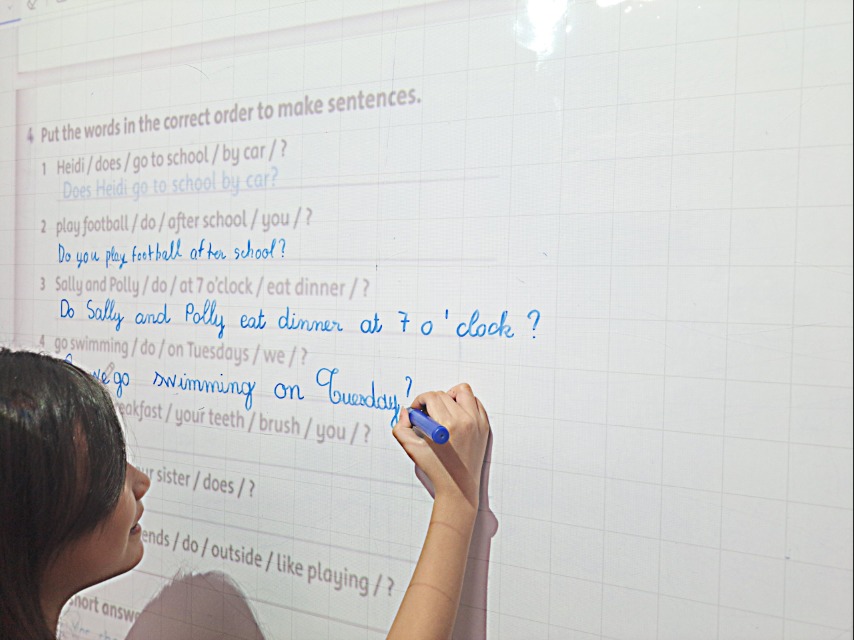 4 Put the words in the correct order to make sentences.
1 Heidi / does / go to school / by car / ?
Does Heidi go to school by car?
2 play football / do / after school / you / ?
Do you play football after school?
3 Sally and Polly / do / at 7 o'clock / eat dinner / ?
Do Sally and Polly eat dinner at 7 o'clock ?
4 go swimming / do / on Tuesdays / we / ?
we go swimming on Tuesday?
/ your teeth / brush / you / ?
sister / does / ?
/ do / outside / like playing / ?